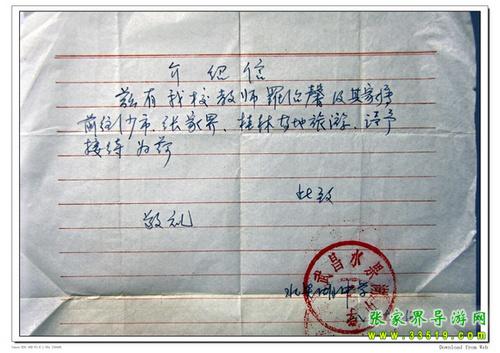 介绍信
兹有我校教师罗伯馨及其家属
前往沙市、张家界、桂林等地旅游、请予
接待为荷
此致
敬礼
武昌水
水果湖中学
张家界导游网
www.33519.com
Download from Web